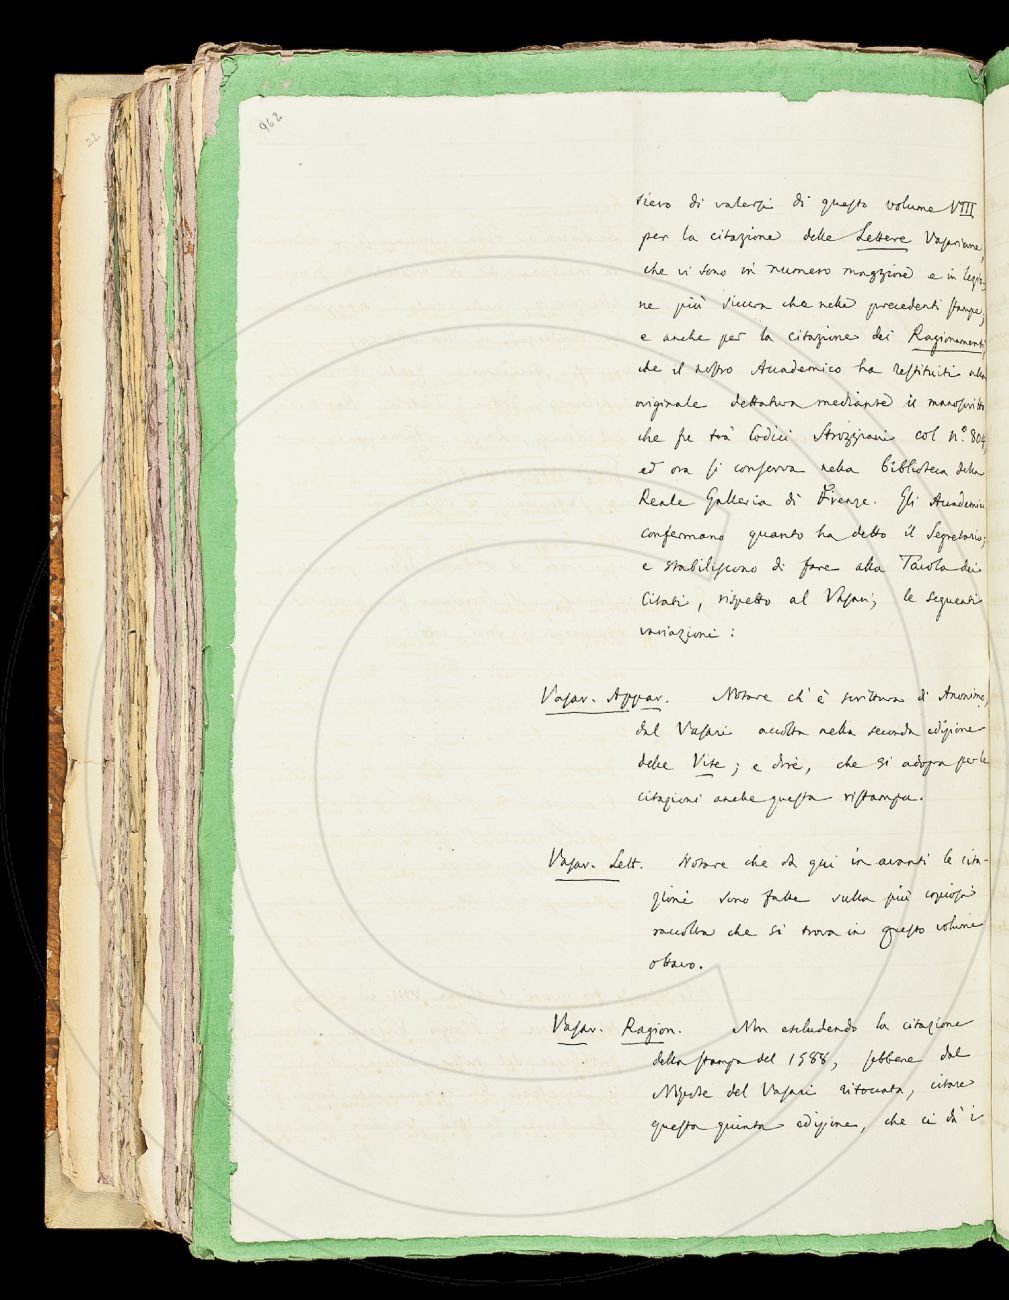 22
962
siero di valersi di questo volume VIII
per la citazione delle Lettere Vasariane,
che vi sono in numero maggiore e in lezio-
ne più sicura che nelle precedenti stampe;
e anche per la citazione dei Ragionamenti,
che il nostro Accademico ha restituiti alla
originale dettatura mediante il manoscritto
che fu tra' Codici Strozziani col n.º 804,
ed ora si conserva nella biblioteca della
Reale Galleria di Firenze. Gli Accademici
confermano quanto ha detto il Segretario;
e stabiliscono di fare alla Tavola dei
Citati, rispetto al Vasari, le seguenti
variazioni:
Vasar. Appar. Notare ch'è scrittura di Anonimo,
dal Vasari accolta nella seconda edizione
delle Vite; e dire, che si adopra per le
citazioni anche questa ristampa.
Vasar. Lett. Notare che da qui in avanti le cita-
zioni sono fatte sulla più copiosa
raccolta che si trova in questo volume
ottavo.
Vasar. Ragion. Non escludendo la citazione
della stampa del 1588, sebbene dal
Nipote del Vasari ritoccata, citare
questa quinta edizione, che ci dà i